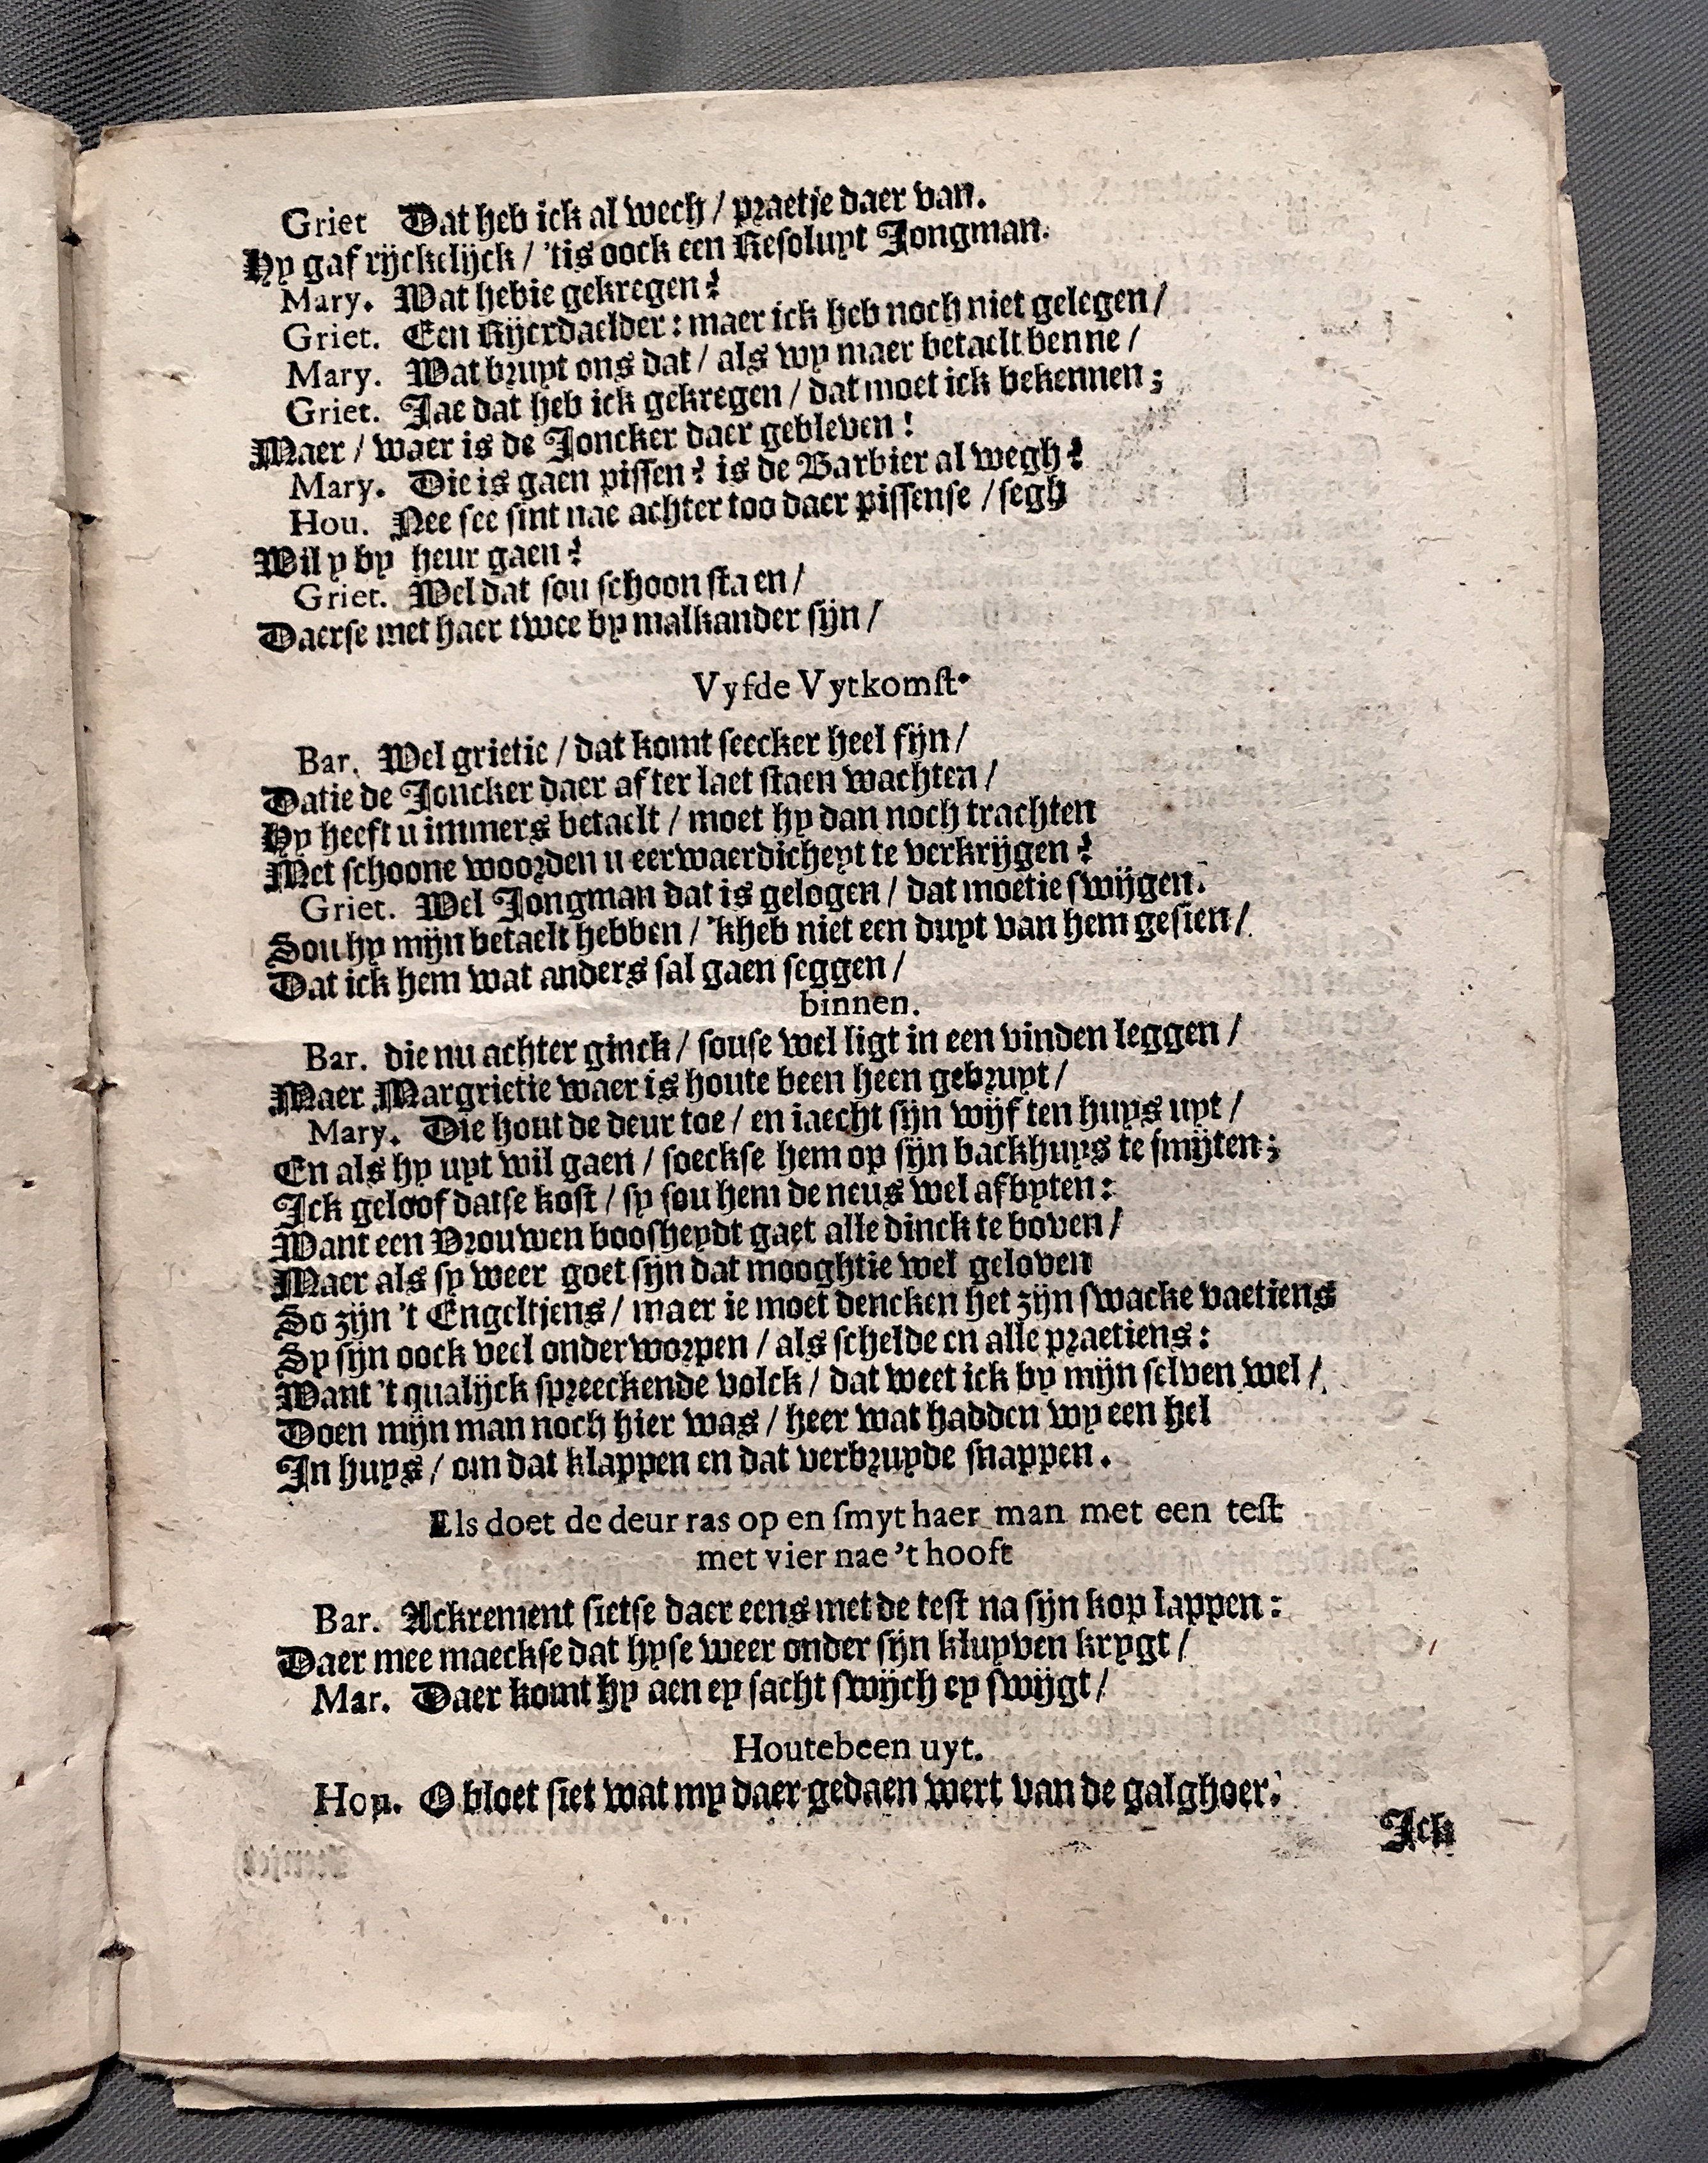 Griet Dat heb ick al wech / praetje daer van.
Hy gaf rijckelijck / 'tis oock een Resoluyt Jongman.
Mary. Wat hebie gekregen?
Griet. Een Rijerdaelder: maer ick heb noch niet gelegen /
Mary. Wat bruyt ons dat / als wy maer betaelt benne /
Griet. Jae dat heb ick gekregen / dat moet ick bekennen;
Maer / waer is de Joncker daer gebleven!
Mary. Die is gaen pissen? is de Barbier al wegh?
Hou. Nee see sint nae achter too daer pissense / segh
Wil y by heur gaen?
Griet. Wel dat sou schoon staen /
Daerse met haer twee by malkander sijn /
Vyfde Vytkomst.
Bar. Wel grietie / dat komt seecker heel fijn /
Datie de Joncker daer after laet staen wachten /
Hy heeft u immers betaelt / moet hy dan noch trachten
Met schoone woorden u eerwaerdicheyt te verkrijgen?
Griet. Wel Jongman dat is gelogen / dat moetie swijgen.
Sou hy mijn betaelt hebben / 'kheb niet een duyt van hem gesien /
Dat ick hem wat anders sal gaen seggen /
binnen.
Bar. die nu achter ginck / souse wel ligt in een vinden leggen /
Maer Margrietie waer is houte been heen gebruyt /
Mary. Die hout de deur toe / en iaecht sijn wijf ten huys uyt /
En als hy uyt wil gaen / soeckse hem op sijn backhuys te smijten;
Ick geloof datse kost / sy sou hem de neus wel afbyten:
Want een Vrouwen boosheydt gaet alle dinck te boven /
Maer als sy weer goet sijn dat mooghtie wel geloven
So zijn 't Engeltjens / maer ie moet dencken het zijn swacke vaetiens
Sy sijn oock veel onderworpen / als schelde en alle praetiens:
Want 't qualijck spreeckende volck / dat weet ick by mijn selven wel /
Doen mijn man noch hier was / heer wat hadden wy een hel
In huys / om dat klappen en dat verbruyde snappen.
Els doet de deur ras op en smyt haer man met een test
met vier nae 't hooft
Bar. Ackrement sietse daer eens met de test na sijn kop lappen:
Daer mee maeckse dat hyse weer onder sijn kluyven krygt /
Mar. Daer komt hy aen ey sacht swijch ey swijgt /
Houtebeen uyt.
Hou. O bloet siet wat my daer gedaen wert van de galghoer.
Ick